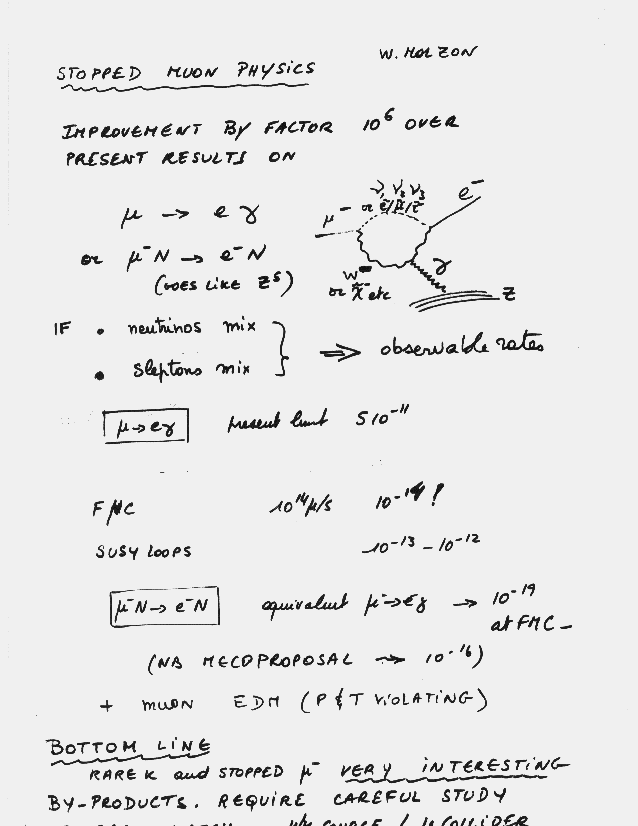 W. MOLZON
STOPPED MUON PHYSICS
IMPROVEMENT BY FACTOR 10⁶ OVER
PRESENT RESULTS ON
μ → e γ
or μ⁻N → e⁻N
(GOES LIKE Z⁵)
ν₁ ν₂ ν₃
or ẽ/μ̃/τ̃
μ⁻
e⁻
W⁻
or χ̃⁻ etc
γ
Z
IF • neutrinos mix
• sleptons mix
⇒ observable rates
μ→eγ present limit 5 10⁻¹¹
FMC 10¹⁴μ/s 10⁻¹⁴!
SUSY LOOPS 10⁻¹³ – 10⁻¹²
μ⁻N→ e⁻N equivalent μ→eγ → 10⁻¹⁹
at FMC –
(NB MECO PROPOSAL → 10⁻¹⁶)
+ muon EDM (P & T VIOLATING)
BOTTOM LINE
RARE K and STOPPED μ⁻ VERY INTERESTING
BY-PRODUCTS. REQUIRE CAREFUL STUDY